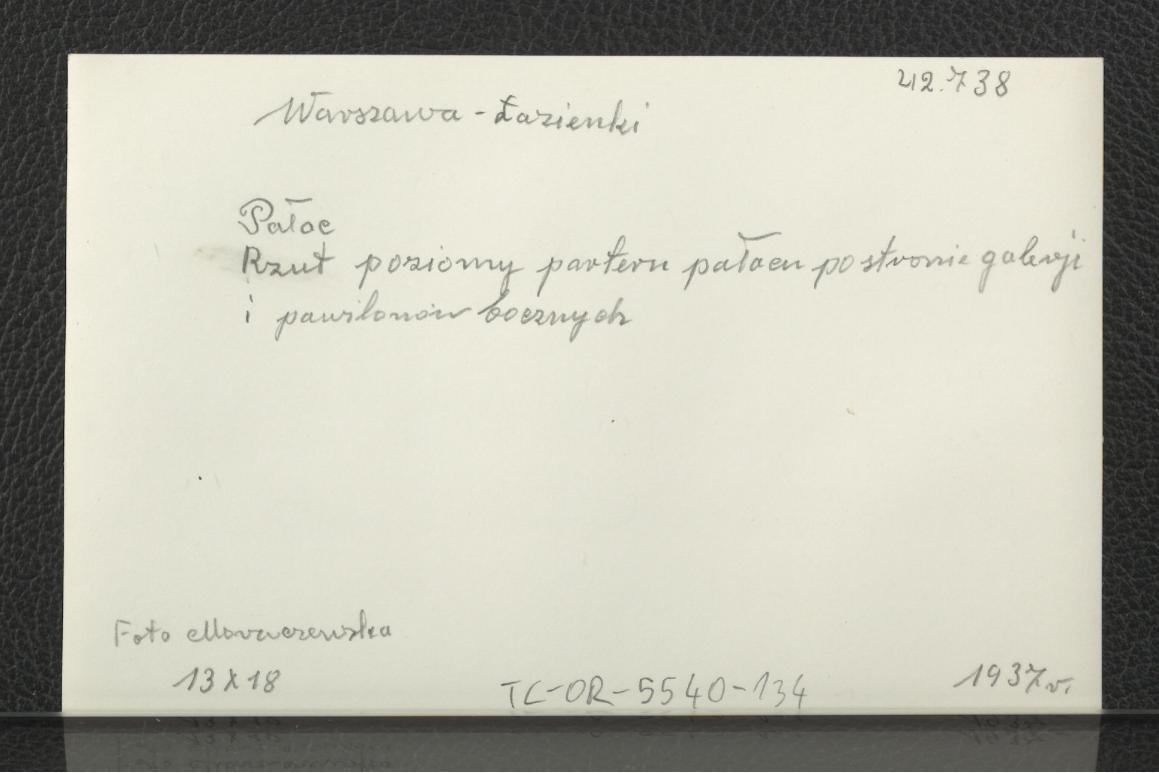 42.738
Warszawa - Łazienki
Pałac
Rzut poziomy parteru pałacu po stronie galeryji
i pawilonów bocznych
Foto
13 x 18
TC-OR-5540-134
1937 r.